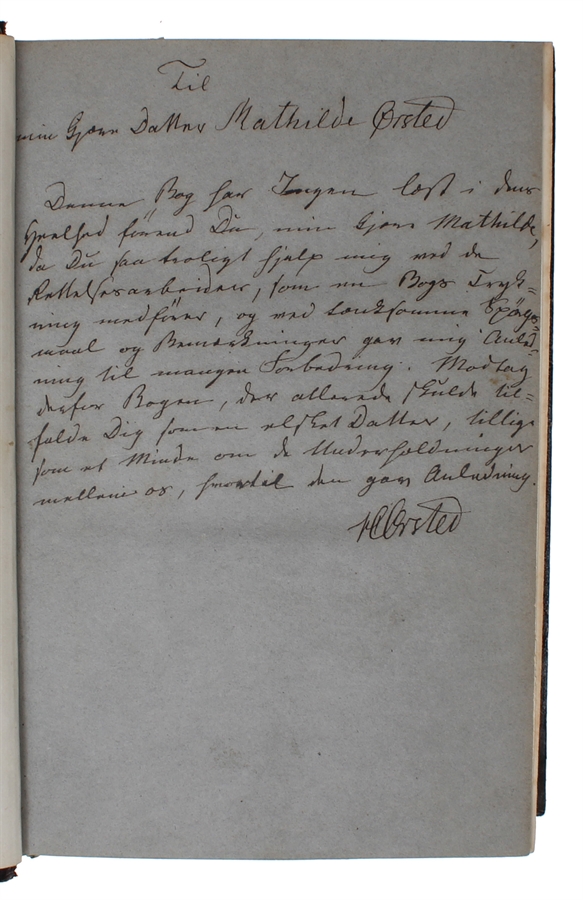 Til
min kjære Datter Mathilde Ørsted
Denne Bog har Ingen læst i dens
Heelhed førend Du, min kjære Mathilde,
da Du saa troligt hjalp mig ved de
Rettelsesarbeider, som en Bogs Tryk-
ning medfører, og ved tænksomme Spörgs-
maal og Bemærkninger gav mig Anled-
ning til mangen Forbedring. Modtag
derfor Bogen, der allerede skulde til-
falde Dig som en elsket Datter, tillige
som et Minde om de Underholdninger
mellem os, hvortil den gav Anledning.
HCØrsted